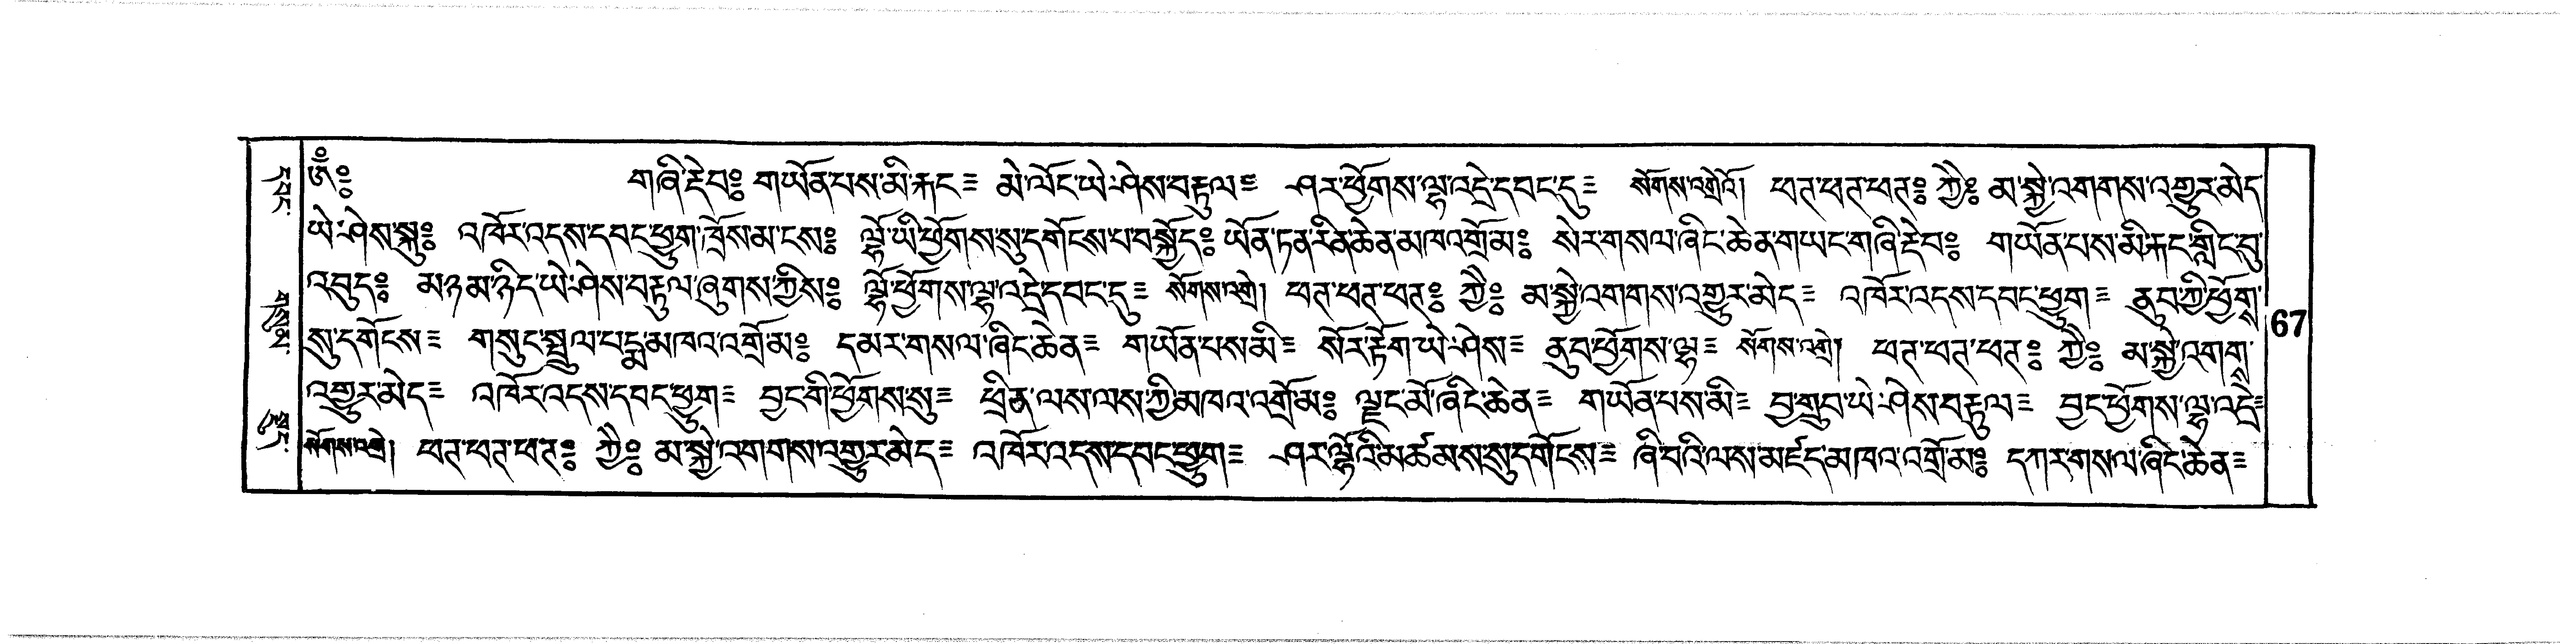 ༀ༔ གཞི་རྡེབ༔ གཡོན་པས་མི་རྐང༴ མེ་ལོང་ཡེ་ཤེས་བརྟུལ༴ ཤར་ཕྱོགས་ལྷ་འདྲེ་དབང་དུ༴ སོགས་འགྲེའོ། ཕཊ་ཕཊ་ཕཊ༔ ཀྱཻ༔ མ་སྐྱེ་འགགས་འགྱུར་མེད
ཡེ་ཤེས་སྐུ༔ འཁོར་འདས་དབང་ཕྱུག་ཁྲོས་མ་ངས༔ ལྷོ་ཡི་ཕྱོགས་སུ་དགོངས་པ་བསྐྱོད༔ ཡོན་ཏན་རིན་ཆེན་མཁའ་འགྲོ་མ༔ སེར་གསལ་ཞིང་ཆེན་གཡང་གཞི་རྡེབ༔ གཡོན་པས་མི་རྐང་གླིང་བུ་
འབུད༔ མཉམ་ཉིད་ཡེ་ཤེས་བརྟུལ་ཞུགས་ཀྱིས༔ ལྷོ་ཕྱོགས་ལྷ་འདྲེ་དབང་དུ༴ སོགས་འགྲེ། ཕཊ་ཕཊ་ཕཊ༔ ཀྱཻ༔ མ་སྐྱེ་འགགས་འགྱུར་མེད༴ འཁོར་འདས་དབང་ཕྱུག༴ ནུབ་ཀྱི་ཕྱོགས་
སུ་དགོངས༴ གསུང་སྤྲུལ་པདྨ་མཁའ་འགྲོ་མ༔ དམར་གསལ་ཞིང་ཆེན༴ གཡོན་པས་མི༴ སོར་རྟོག་ཡེ་ཤེས༴ ནུབ་ཕྱོགས་ལྷ༴ སོགས་འགྲེ། ཕཊ་ཕཊ་ཕཊ༔ ཀྱཻ༔ མ་སྐྱེ་འགགས་
འགྱུར་མེད༴ འཁོར་འདས་དབང་ཕྱུག༴ བྱང་གི་ཕྱོགས་སུ༴ ཕྲིན་ལས་ལས་ཀྱི་མཁའ་འགྲོ་མ༔ ལྗང་མོ་ཞིང་ཆེན༴ གཡོན་པས་མི༴ བྱ་གྲུབ་ཡེ་ཤེས་བརྟུལ༴ བྱང་ཕྱོགས་ལྷ་འདྲེ༴
སོགས་འགྲེ། ཕཊ་ཕཊ་ཕཊ༔ ཀྱཻ༔ མ་སྐྱེ་འགགས་འགྱུར་མེད༴ འཁོར་འདས་དབང་ཕྱུག༴ ཤར་ལྷོའི་མཚམས་སུ་དགོངས༴ ཞི་བའི་ལས་མཛད་མཁའ་འགྲོ་མ༔ དཀར་གསལ་ཞིང་ཆེན༴
67